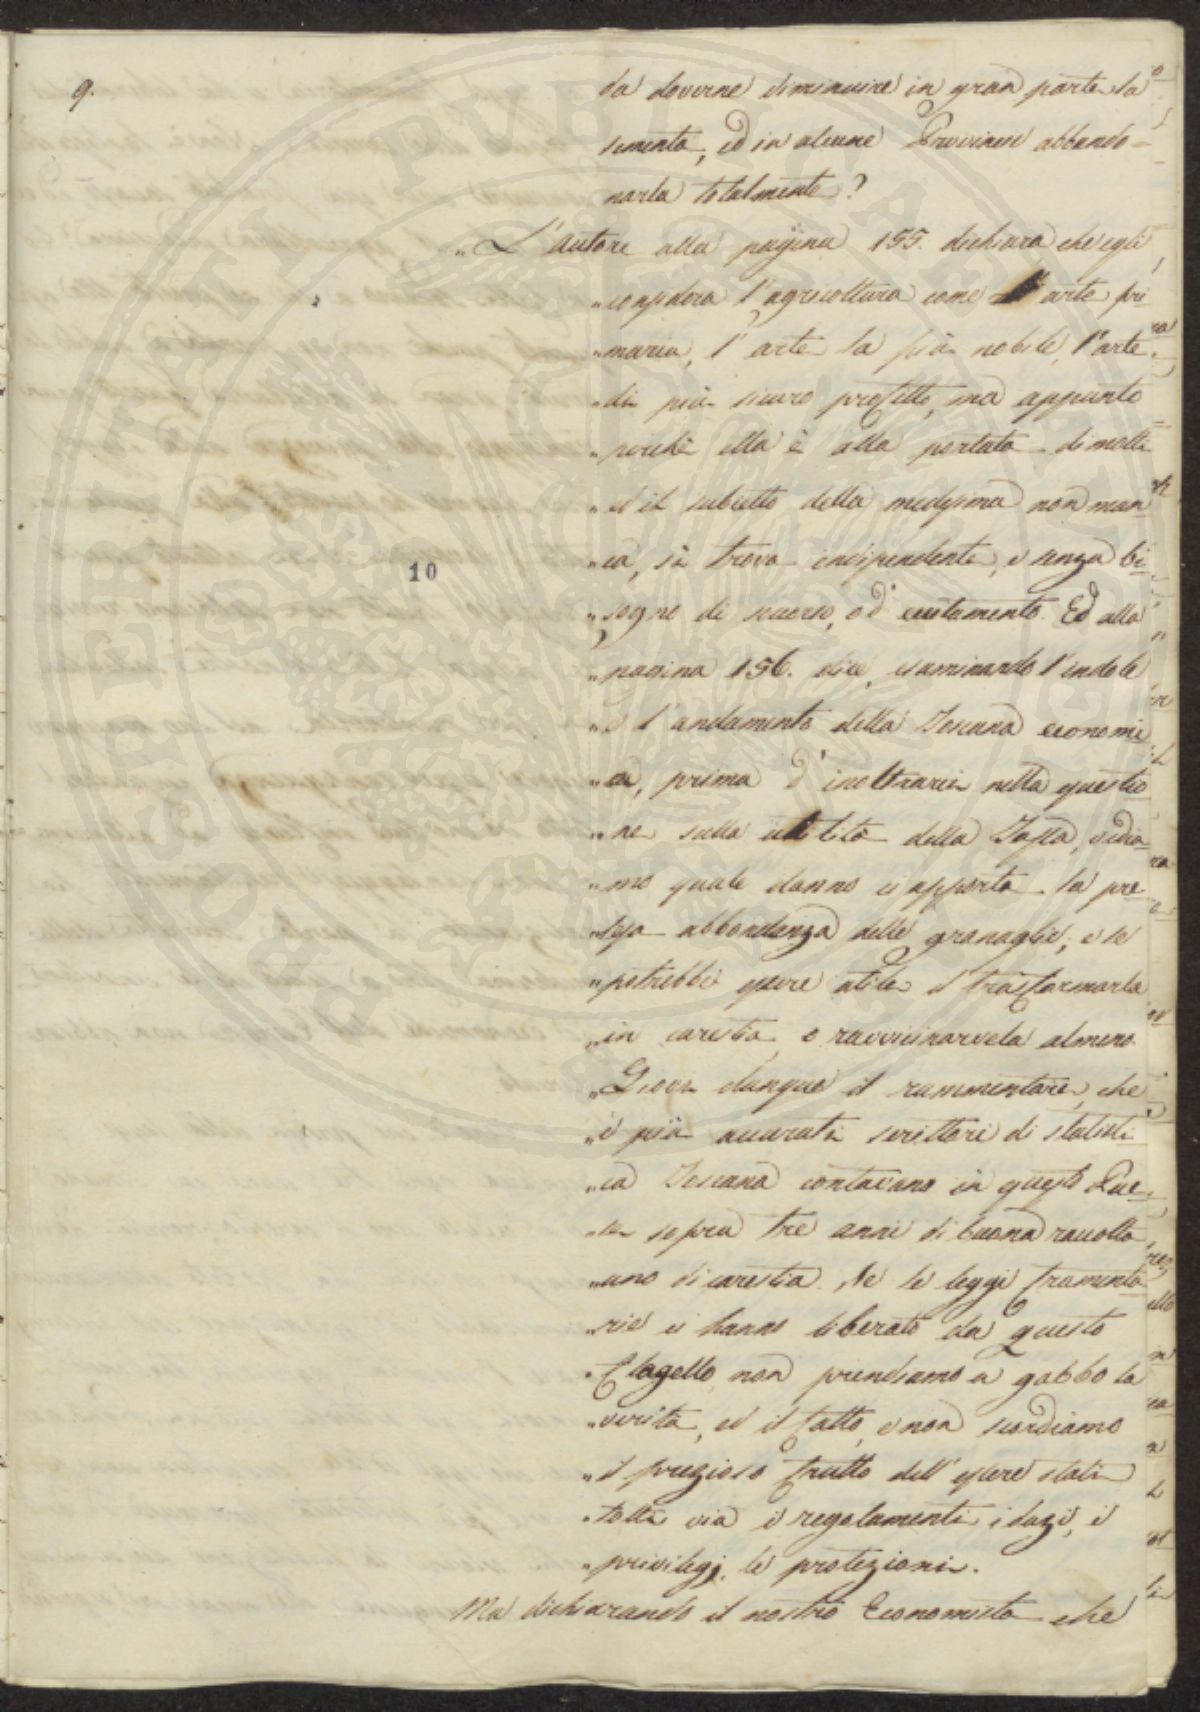 9.
da doverne diminuire in gran parte la
sementa, ed in alcune Provincie abbando=
narla totalmente?
„ L'autore alla pagina 155. dichiara che egli
„ considera l'agricoltura come l'arte pri
„ maria, l'arte la più nobile, l'arte
„ di più sicuro profitto, ma appunto
„ perchè ella è alla portata di molti
„ ed il subietto della medesima non man
„ ca, si trova indipendente, e senza bi
„ sogno di soccorso, od aiutamento. Ed alla
„ pagina 156. dice, esaminando l'indole
„ e l'andamento della Toscana economi
„ ca, prima d'inoltrarci nella questio
„ ne sulla utilità della Tassa, vedia
„ mo quale danno ci apporta la pre
„ tesa abbondanza delle granaglie, e se
„ potrebbe essere utile il trasformarla
„ in carestia, o ravvicinarvela almeno.
„ Giovi dunque il rammentare, che
„ i più accurati scrittori di statisti
„ ca Toscana contavano in questo Pae
„ se sopra tre anni di buona raccolta
„ uno di carestia. Se le leggi frumenta
„ rie ci hanno liberato da questo
„ flagello, non prendiamo a gabbo la
„ verità, ed il fatto, e non scordiamo
„ il prezioso frutto dell'essere stati
„ tolti via i regolamenti, i dazi, i
„ privilegj, le protezioni.
Ma dichiarando il nostro Economista che
10